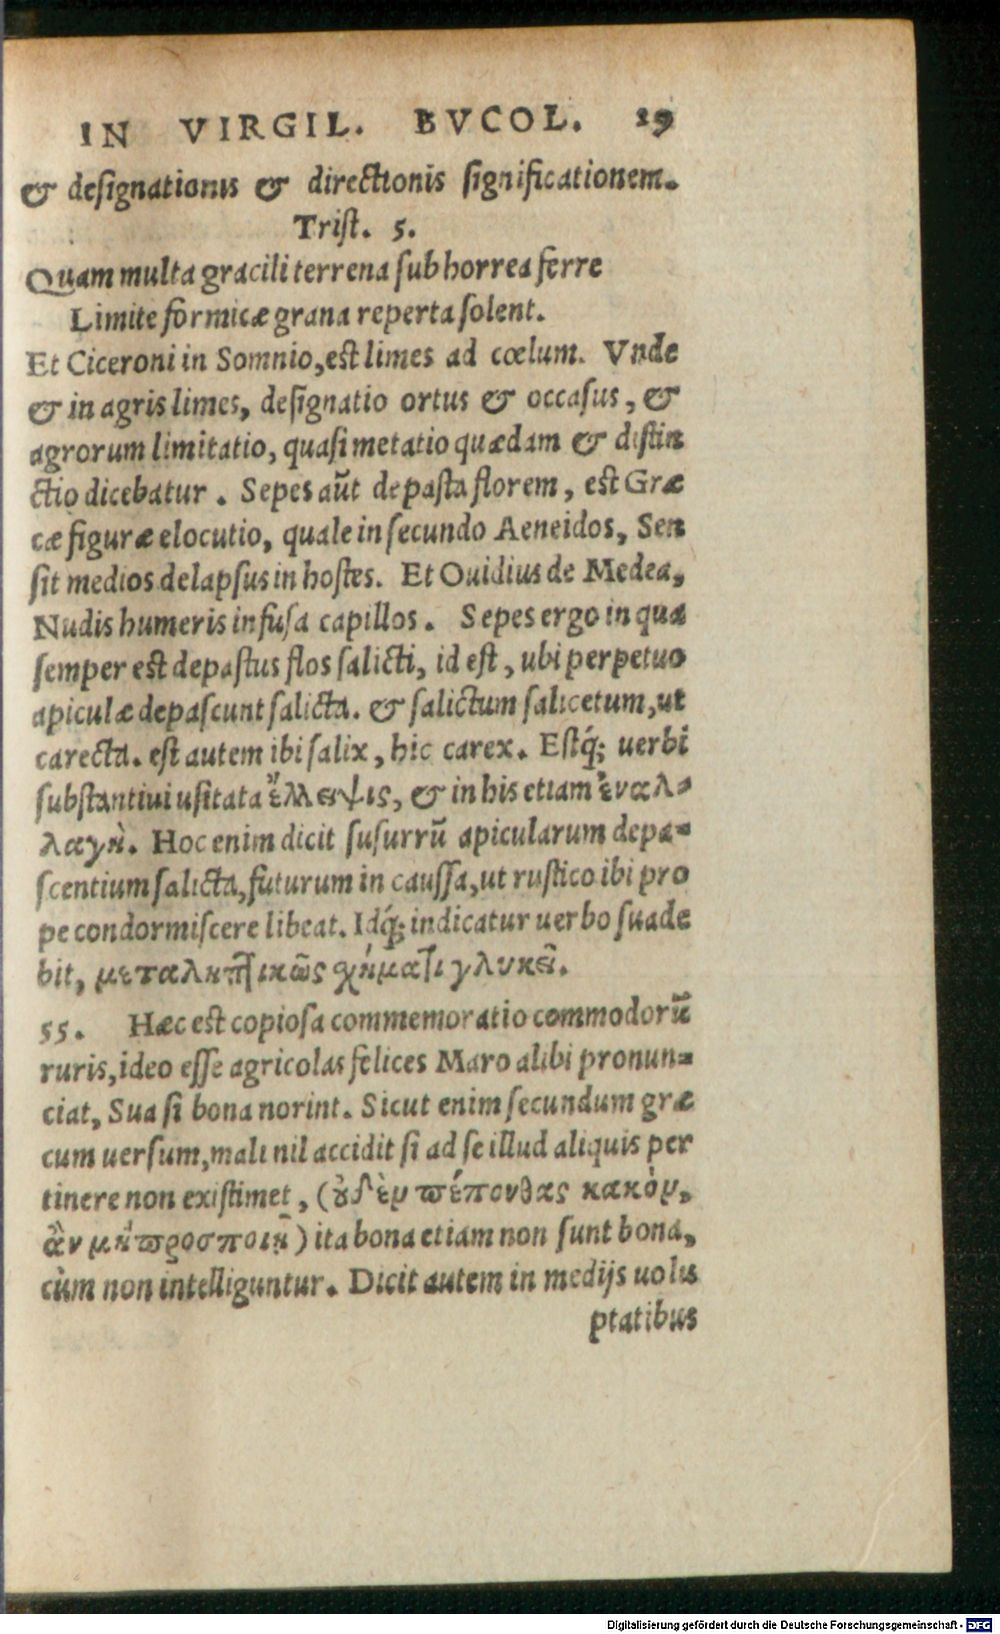 IN VIRGIL. BVCOL. 29
& designationis & directionis significationem.
Trist. 5.
Quam multa gracili terrena sub horrea ferre
Limite formicæ grana reperta solent.
Et Ciceroni in Somnio, est limes ad cœlum. Vnde
& in agris limes, designatio ortus & occasus, &
agrorum limitatio, quasi metatio quædam & distin
ctio dicebatur. Sepes aũt depasta florem, est Græ
cæ figuræ elocutio, quale in secundo Aeneidos, Sen
sit medios delapsus in hostes. Et Ouidius de Medea,
Nudis humeris infusa capillos. Sepes ergo in qua
semper est depastus flos salicti, id est, ubi perpetuo
apiculæ depascunt salicta. & salictum salicetum, ut
carecta. est autem ibi salix, hic carex. Estq́; uerbi
substantiui usitata ἔλλειψις, & in his etiam ἐναλ-
λαγὴ. Hoc enim dicit susurrũ apicularum depa-
scentium salicta, futurum in caussa, ut rustico ibi pro
pe condormiscere libeat. Idq́; indicatur uerbo suade
bit, μεταληπτικῶς χήματι γλυκεῖ.
55. Hæc est copiosa commemoratio commodorũ
ruris, ideo esse agricolas felices Maro alibi pronun-
ciat, Sua si bona norint. Sicut enim secundum græ
cum uersum, mali nil accidit si ad se illud aliquis per
tinere non existimet, (οὐδὲν πέπονθας κακὸν,
ἂν μὴ προσποιῇ) ita bona etiam non sunt bona,
cùm non intelliguntur. Dicit autem in medijs uolu
ptatibus
Digitalisierung gefördert durch die Deutsche Forschungsgemeinschaft - DFG